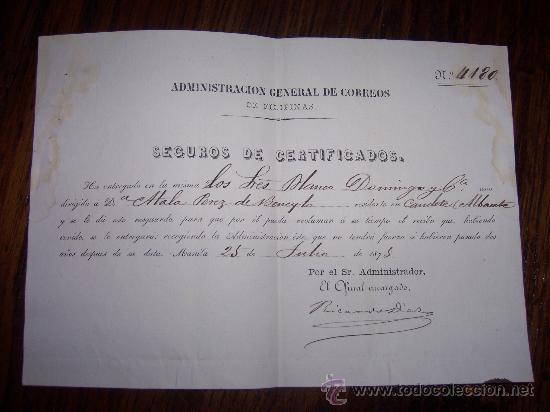 N.º 4180
ADMINISTRACION GENERAL DE CORREOS
DE FILIPINAS.
SEGUROS DE CERTIFICADOS.
Ha entregado en la misma Los Sres Blanco Domingo y Cª uno
dirigido á Dª Atala Perez de residente en Caudete (Albacete
y se le dá este resguardo para que por él pueda reclamar á su tiempo el recibo que, habiendo
venido, se le entregará; recogiendo la Administracion éste, que no tendrá fuerza si hubieren pasado dos
años despues de su data. Manila 25 de Julio de 1873
Por el Sr. Administrador,
El Oficial encargado,
Ricardo Diaz
todocoleccion
© www.todocoleccion.net